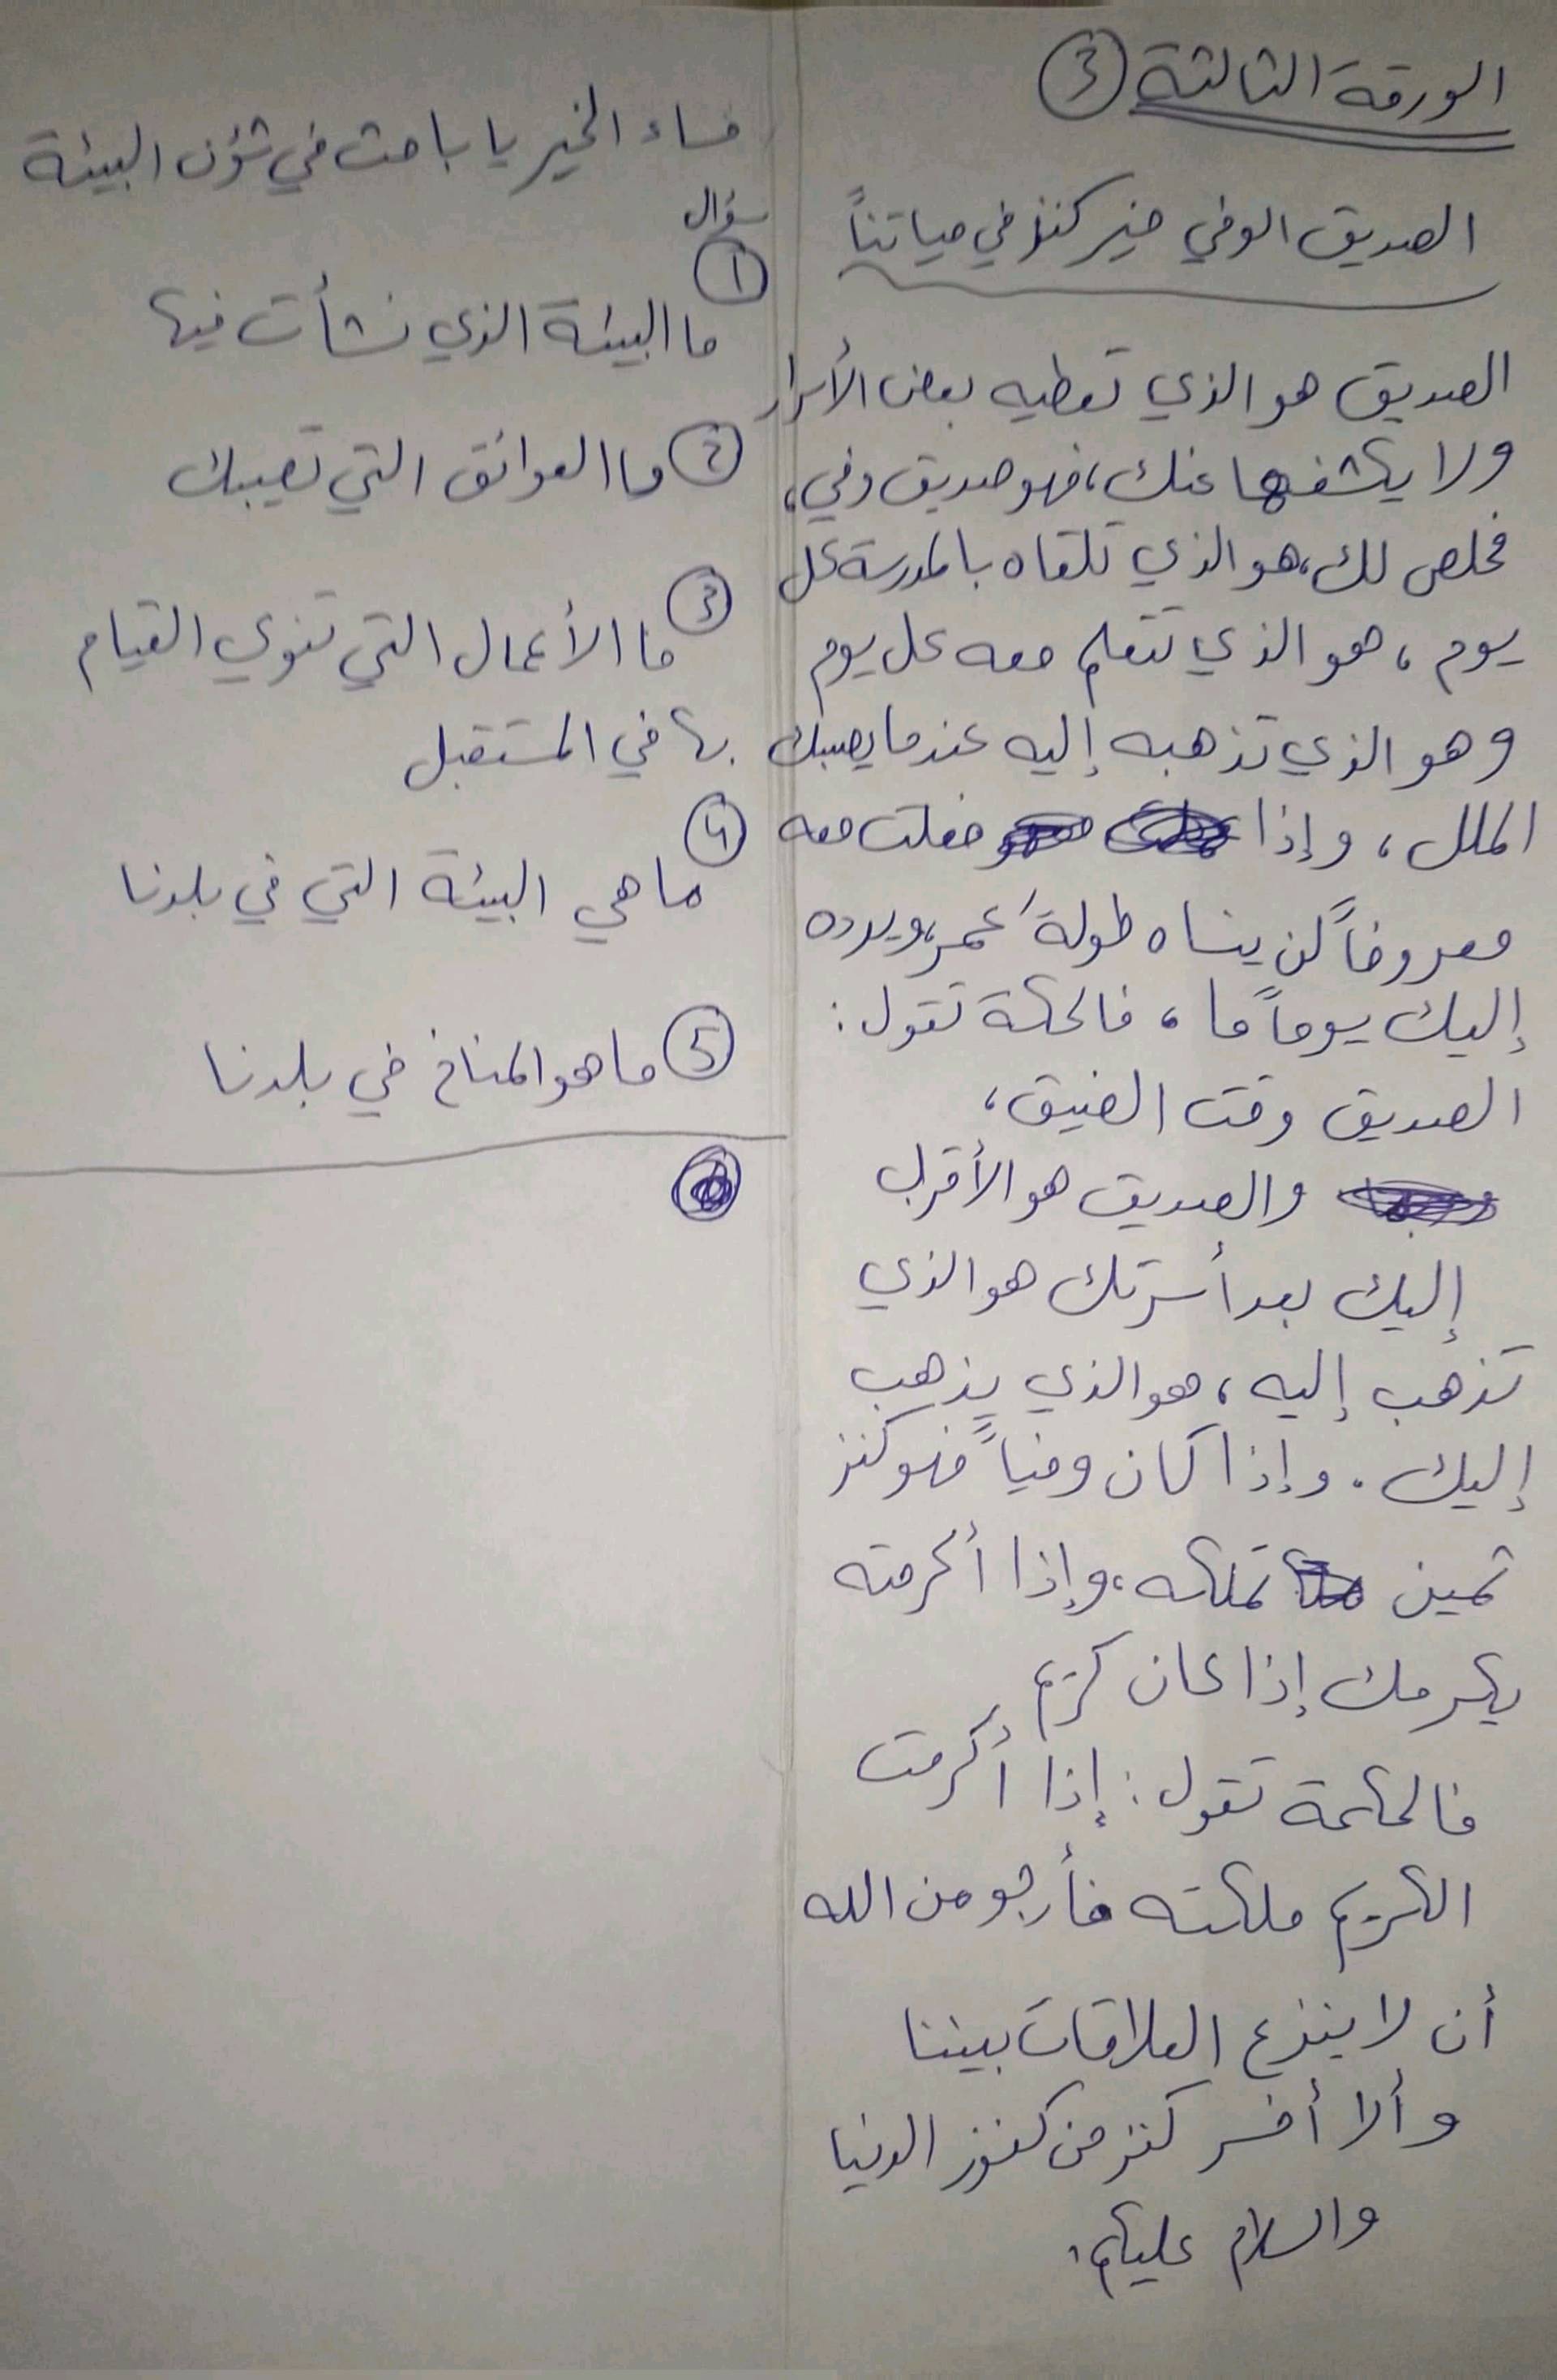 الورقة الثالثة ③
الصديق الوفي خير كنز في حياتناً
الصديق هو الذي تعطيه بعض الأسرار
ولا يكشفها عنك، فهو صديق وفي،
مخلص لك، هو الذي تلقاه بالمدرسة كل
يوم، هو الذي تتعلم معه كل يوم
وهو الذي تذهبه إليه عندما يصيبك
الملل، وإذا فعلت معه
معروفاً لن ينساه طولة عمر، ويرده
إليك يوماً ما، فالحكمة تقول:
الصديق وقت الضيق،
والصديق هو الأقرب
إليك بعد أسرتك هو الذي
تذهب إليه، هو الذي يذهب
إليك. وإذا كان وفياً فهو كنز
ثمين تملكه، وإذا أكرمته
يكرمك إذا كان كريم
فالحكمة تقول: إذا أكرمت
الكريم ملكته فأرجو من الله
أن لا ينزع العلاقات بيننا
وألا أخسر كنز من كنوز الدنيا
والسلام عليكم.
مساء الخير يا باحث في شؤن البيئة
سؤال
① ما البيئة الذي نشأت فيها
② ما العوائق التي تصيبك
③ ما الأعمال التي تنوي القيام
بها في المستقبل
④ ما هي البيئة التي في بلدنا
⑤ ما هو المناخ في بلدنا